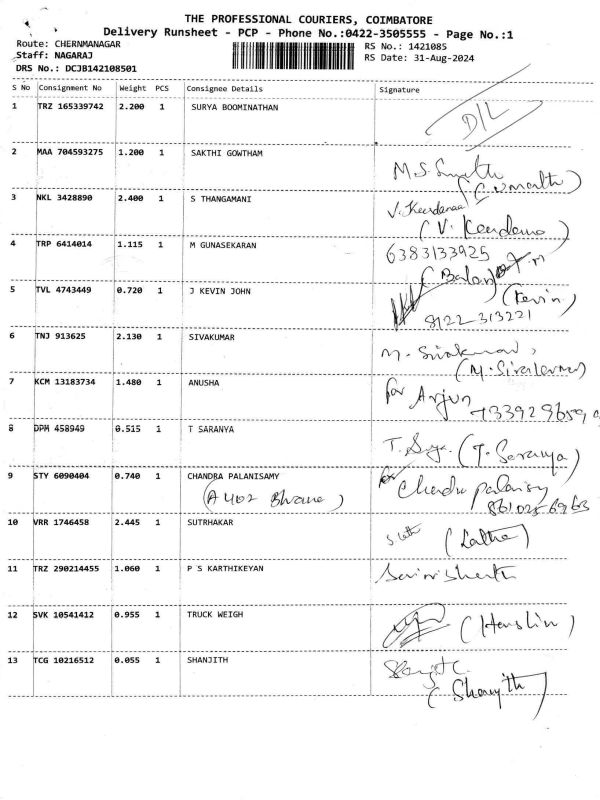 THE PROFESSIONAL COURIERS, COIMBATORE
Delivery Runsheet - PCP - Phone No.:0422-3505555 - Page No.:1
Route: CHERNMANAGAR RS No.: 1421085
Staff: NAGARAJ RS Date: 31-Aug-2024
DRS No.: DCJB142108501
S No Consignment No Weight PCS Consignee Details Signature
1 TRZ 165339742 2.200 1 SURYA BOOMINATHAN
D/L
2 MAA 704593275 1.200 1 SAKTHI GOWTHAM
M.S.
3 NKL 3428890 2.400 1 S THANGAMANI
V.
(V. )
4 TRP 6414014 1.115 1 M GUNASEKARAN
6383133925
5 TVL 4743449 0.720 1 J KEVIN JOHN
(Kevin)
8122-313221
6 TNJ 913625 2.130 1 SIVAKUMAR
M.
7 KCM 13183734 1.480 1 ANUSHA
for Arjun
8 DPM 458949 0.515 1 T SARANYA
(T. Saranya)
9 STY 6090404 0.740 1 CHANDRA PALANISAMY
for Chandra
(A 402 )
10 VRR 1746458 2.445 1 SUTRHAKAR
(Latha)
11 TRZ 290214455 1.060 1 P S KARTHIKEYAN
12 SVK 10541412 0.955 1 TRUCK WEIGH
(Henslin)
13 TCG 10216512 0.055 1 SHANJITH
(Shanjith)